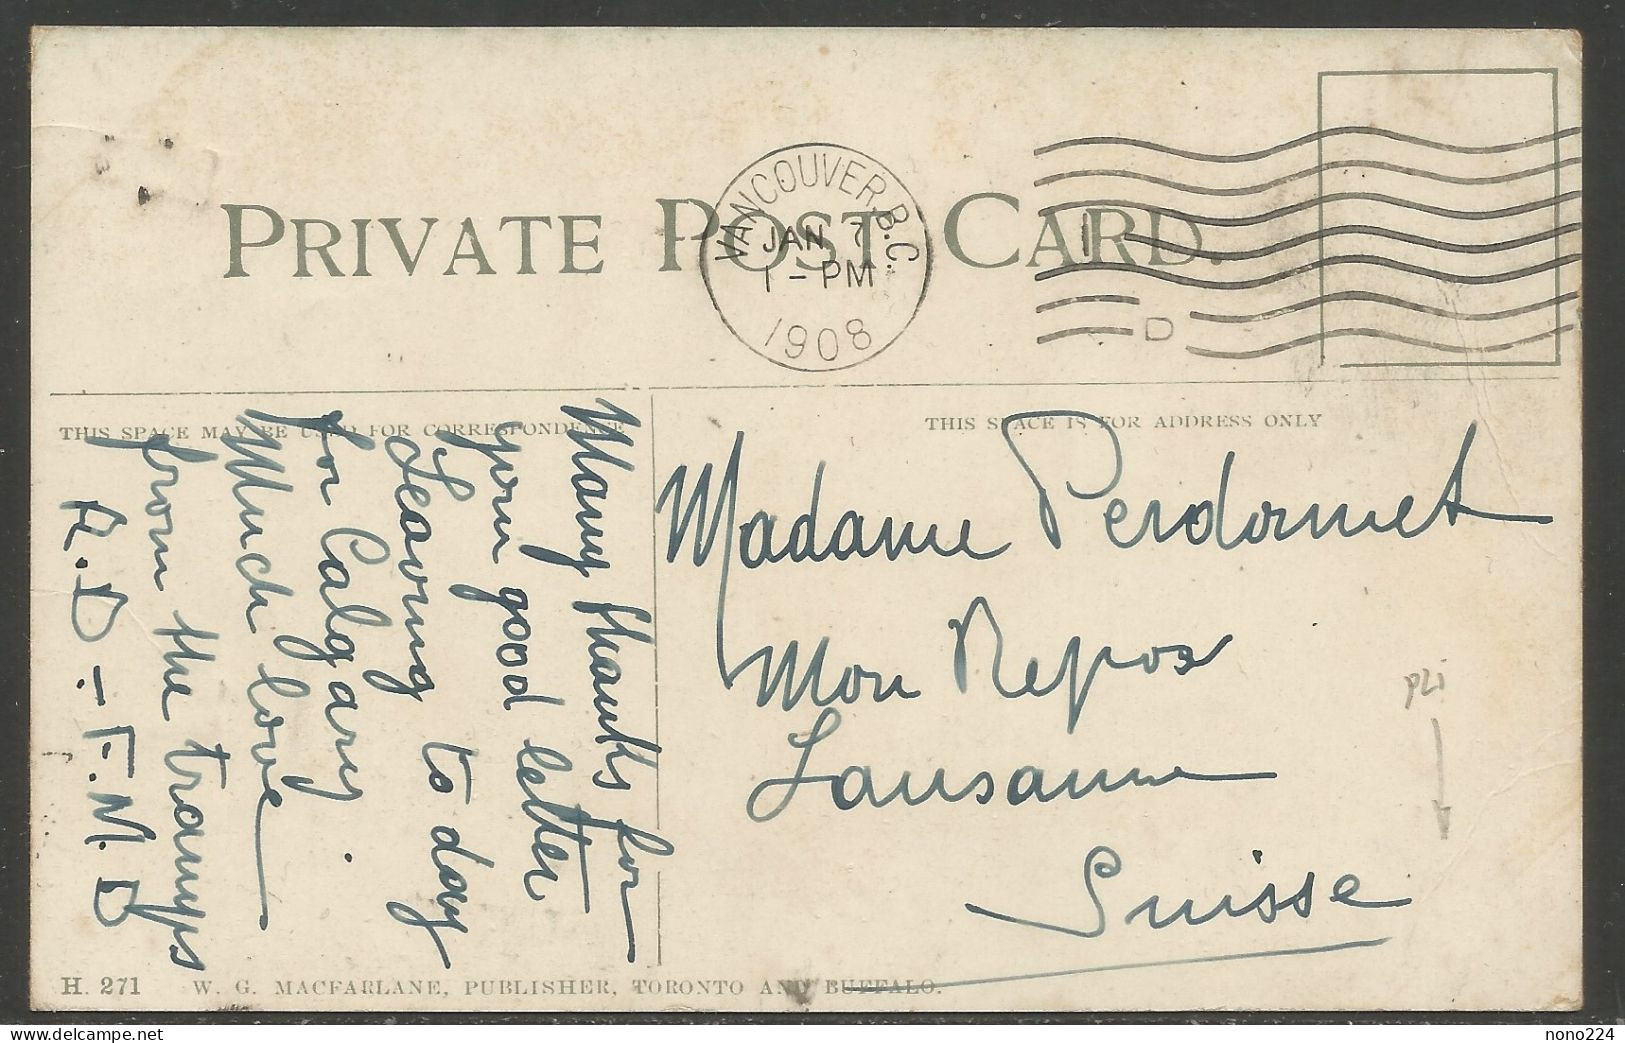 PRIVATE POST CARD.
VANCOUVER, B.C.
JAN 7
1 - PM
1908
D
THIS SPACE MAY BE USED FOR CORRESPONDENCE
THIS SPACE IS FOR ADDRESS ONLY
Many thanks for
your good letter
Leaving to day
for Calgary.
Much love
from the tramps
A.D - F.M.D
Madame Perdonnet
Mon Repos
Lausanne
Suisse
PLi
H. 271 W. G. MACFARLANE, PUBLISHER, TORONTO AND BUFFALO.
www.delcampe.net
nono224